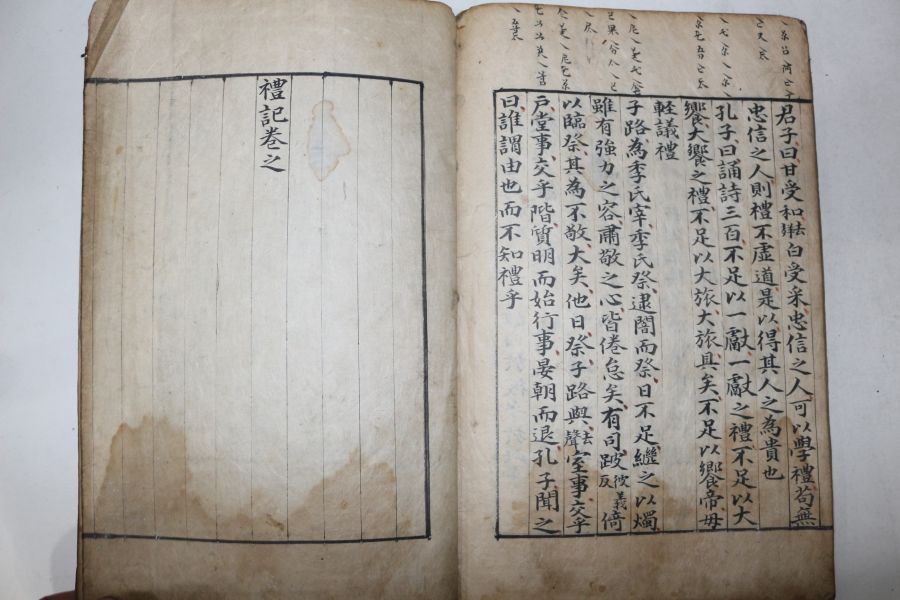 君子曰甘受和去聲白受采忠信之人可以學禮苟無
忠信之人則禮不虛道是以得其人之為貴也
孔子曰誦詩三百不足以一獻一獻之禮不足以大
饗大饗之禮不足以大旅大旅具矣不足以饗帝毋
軽議禮
子路為季氏宰季氏祭逮闇而祭日不足繼之以燭
雖有強力之容肅敬之心皆倦怠矣有司跛彼義反倚
以臨祭其為不敬大矣他日祭子路與去聲室事交乎
戶堂事交乎階質明而始行事晏朝而退孔子聞之
曰誰謂由也而不知禮乎
禮記卷之